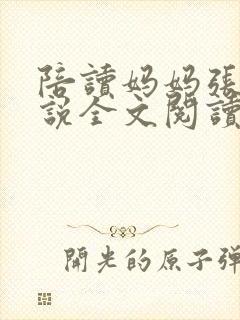 陪讀媽媽張
說全文閱讀
開光的原子彈